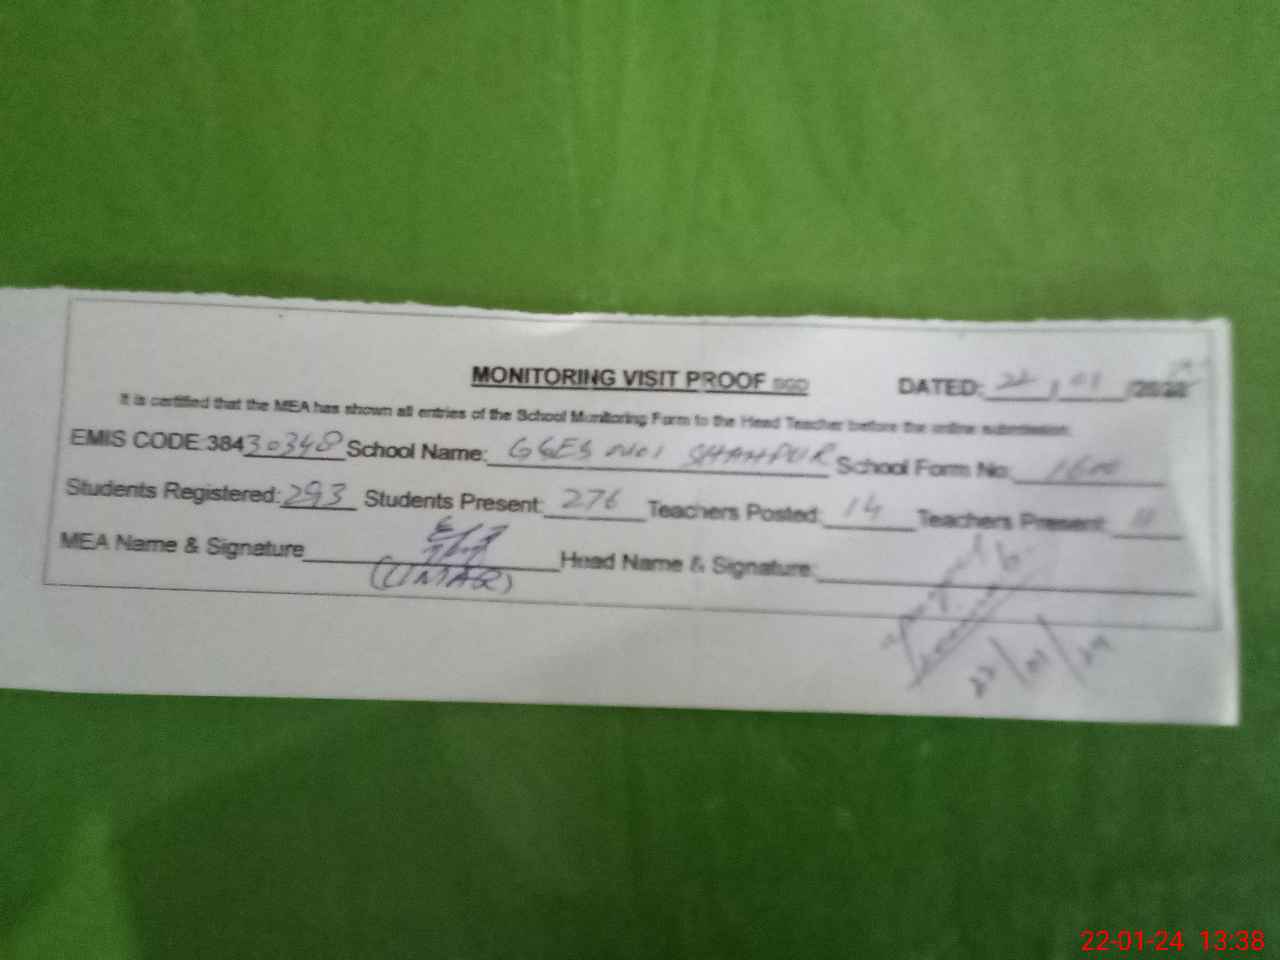 MONITORING VISIT PROOF SGD DATED: 22 / 01 /202
It is certified that the MEA has shown all entries of the School Monitoring Form to the Head Teacher before the online submission.
EMIS CODE:38430348 School Name: GGES NO1 SHAHPUR School Form No:
Students Registered: 293 Students Present: 276 Teachers Posted: 14 Teachers Present: 11
MEA Name & Signature Head Name & Signature:
(UMAR)
22/01/24
22-01-24 13:38